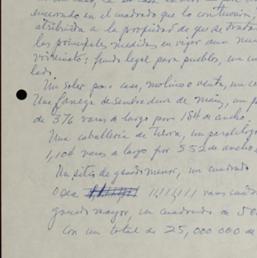 encerado en el cuadrado que lo contuviera,
atribuida a la propiedad de que se trata
las principales medidas en vigor
virreinato: fundo legal para pueblos, un
lado.
Un solar para casa, molino o venta, un
Una fanega de sembradura de maíz, un
de 376 varas a largo por 184 de ancho.
Una caballería de tierra, un
1,104 varas a largo por 552 de ancho
Un sitio de ganado menor, un cuadrado
o sea varas
ganado mayor, un cuadrado
Con un total de 25,000 000 de